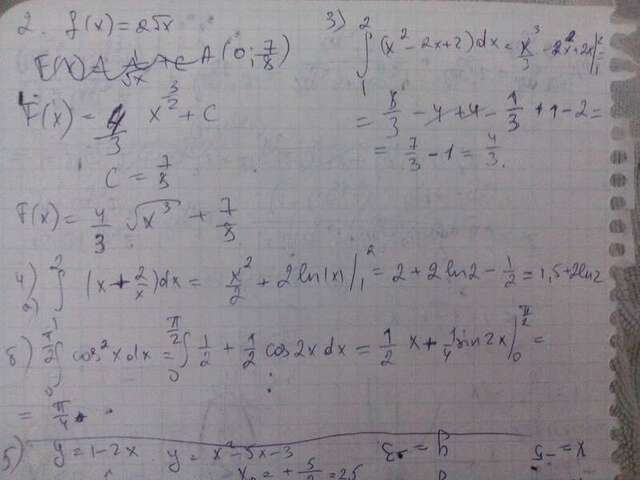 2. f(x) = 2√x
A (0; 7/8)
F(x) = 4/3 x^(3/2) + C
C = 7/8
F(x) = 4/3 √x³ + 7/8
3) ∫₁² (x² - 2x + 2) dx = x³/3 - x² + 2x |₁² =
= 8/3 - 4 + 4 - 1/3 + 1 - 2 =
= 7/3 - 1 = 4/3.
4) a) ∫₁² (x + 2/x) dx = x²/2 + 2 ln|x| |₁² = 2 + 2 ln2 - 1/2 = 1,5 + 2 ln2
б) ∫₀^(π/2) cos²x dx = ∫₀^(π/2) 1/2 + 1/2 cos 2x dx = 1/2 x + 1/4 sin 2x |₀^(π/2) =
= π/4
5) y = 1 - 2x y = x² - 5x - 3